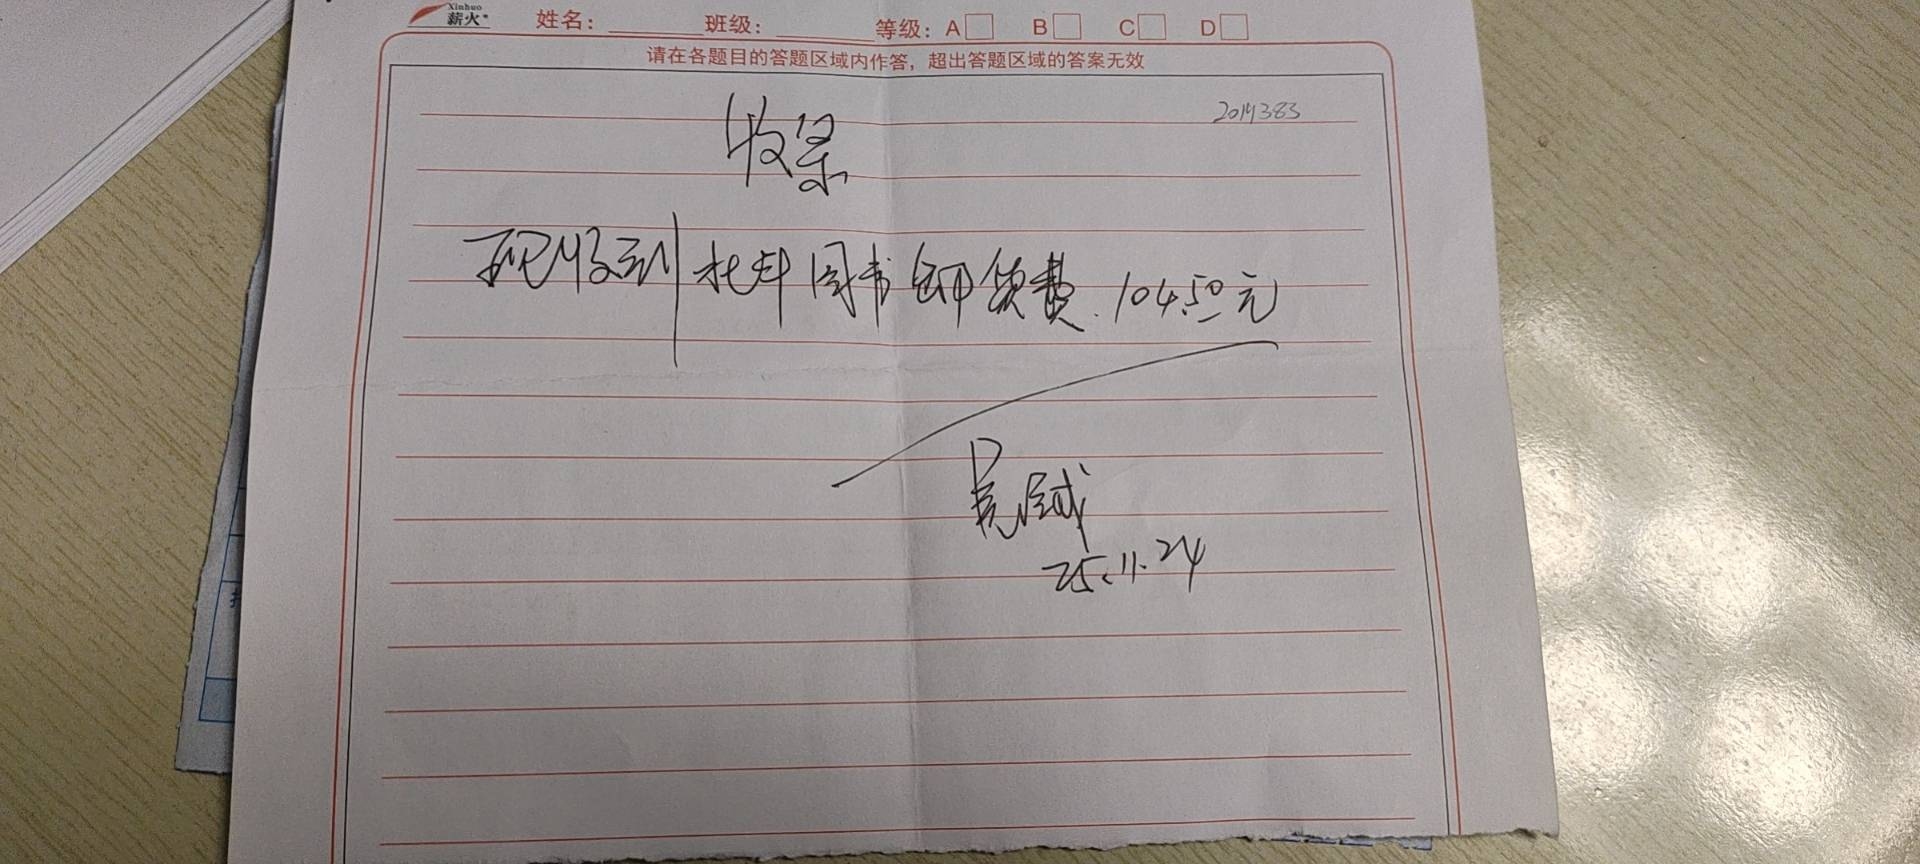 Xinhuo
薪火
姓名: 班级: 等级: A B C D
请在各题目的答题区域内作答，超出答题区域的答案无效
收条
现收到杜丰图书卸货费.104.50元
25.11.24